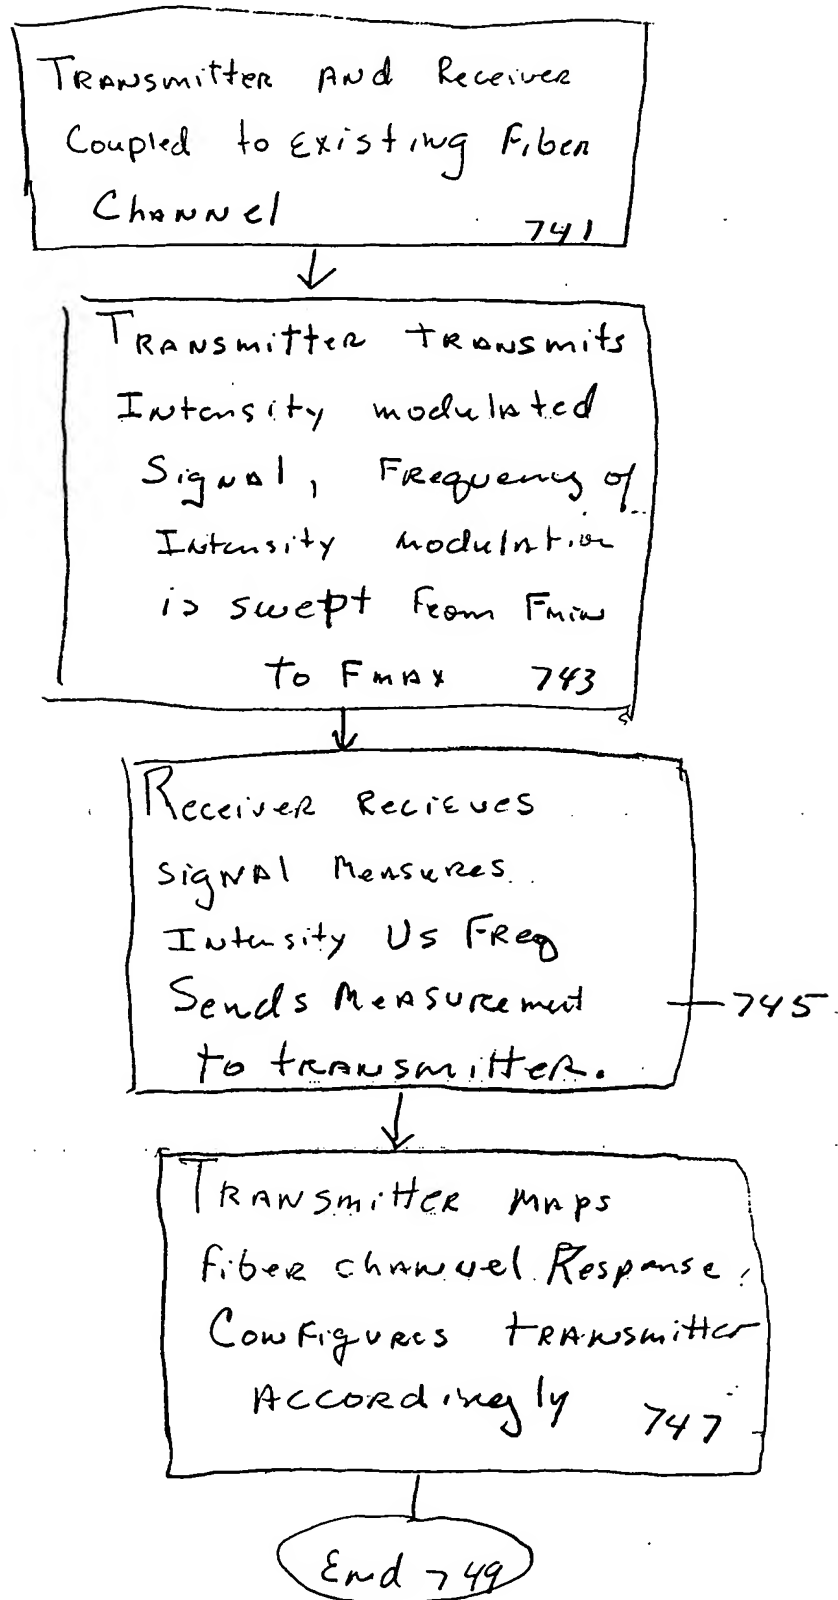 Transmitter and Receiver
Coupled to Existing Fiber
Channel
741
Transmitter transmits
Intensity modulated
Signal, Frequency of
Intensity modulation
is swept from Fmin
to Fmax 743
Receiver Recieves
signal Measures
Intensity Vs Freq
Sends Measurement
to transmitter.
745
Transmitter maps
fiber channel Response,
Configures transmitter
Accordingly
747
End 749